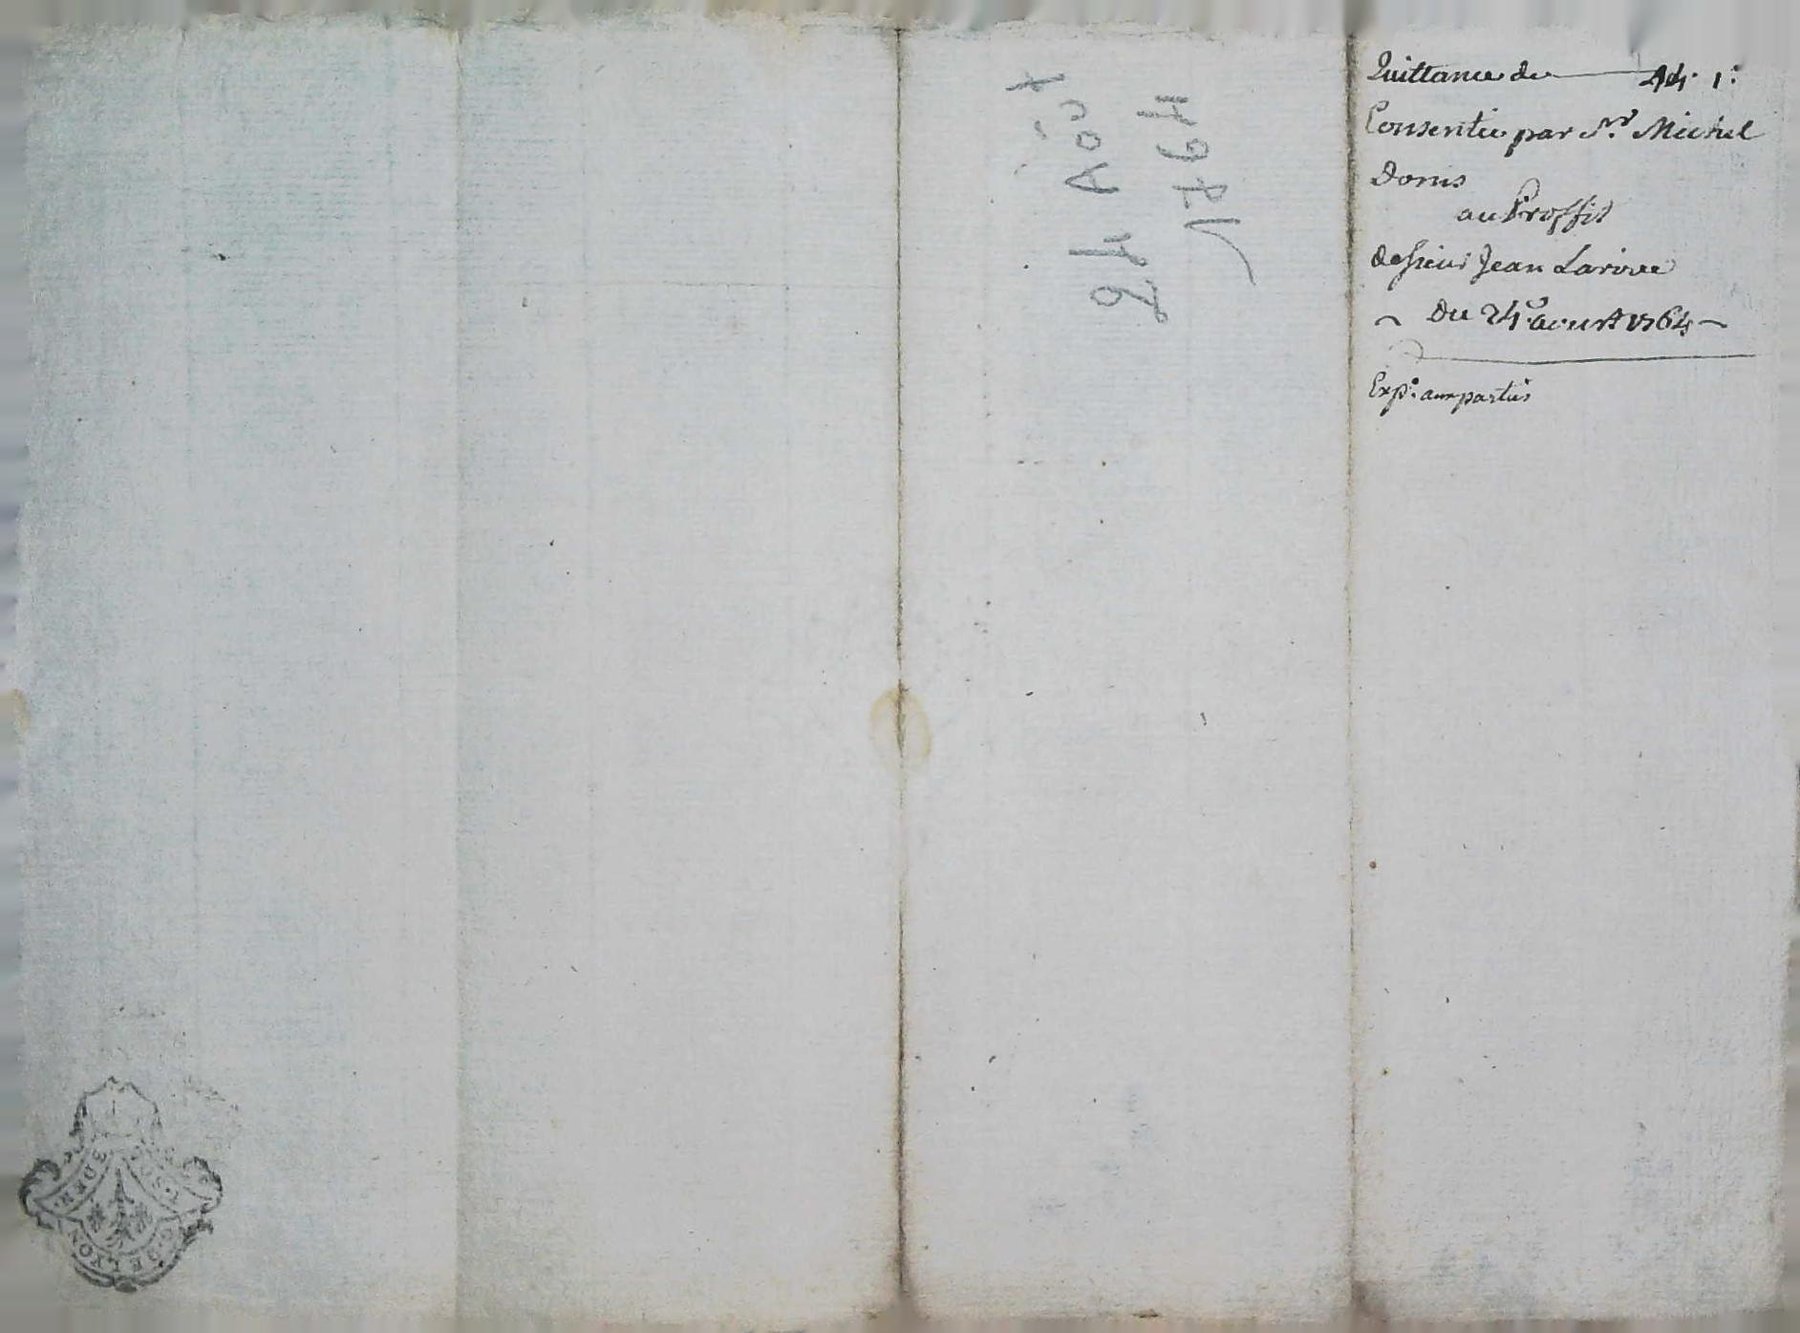 Quittance de 44. l:
Consentie par Sr. Michel
Donis
au Proffit
de sieur Jean Larivee
Du 24e. aoust 1764
Exp: aux parties
24 Août
1764
3 DEN.
G. DE LYON